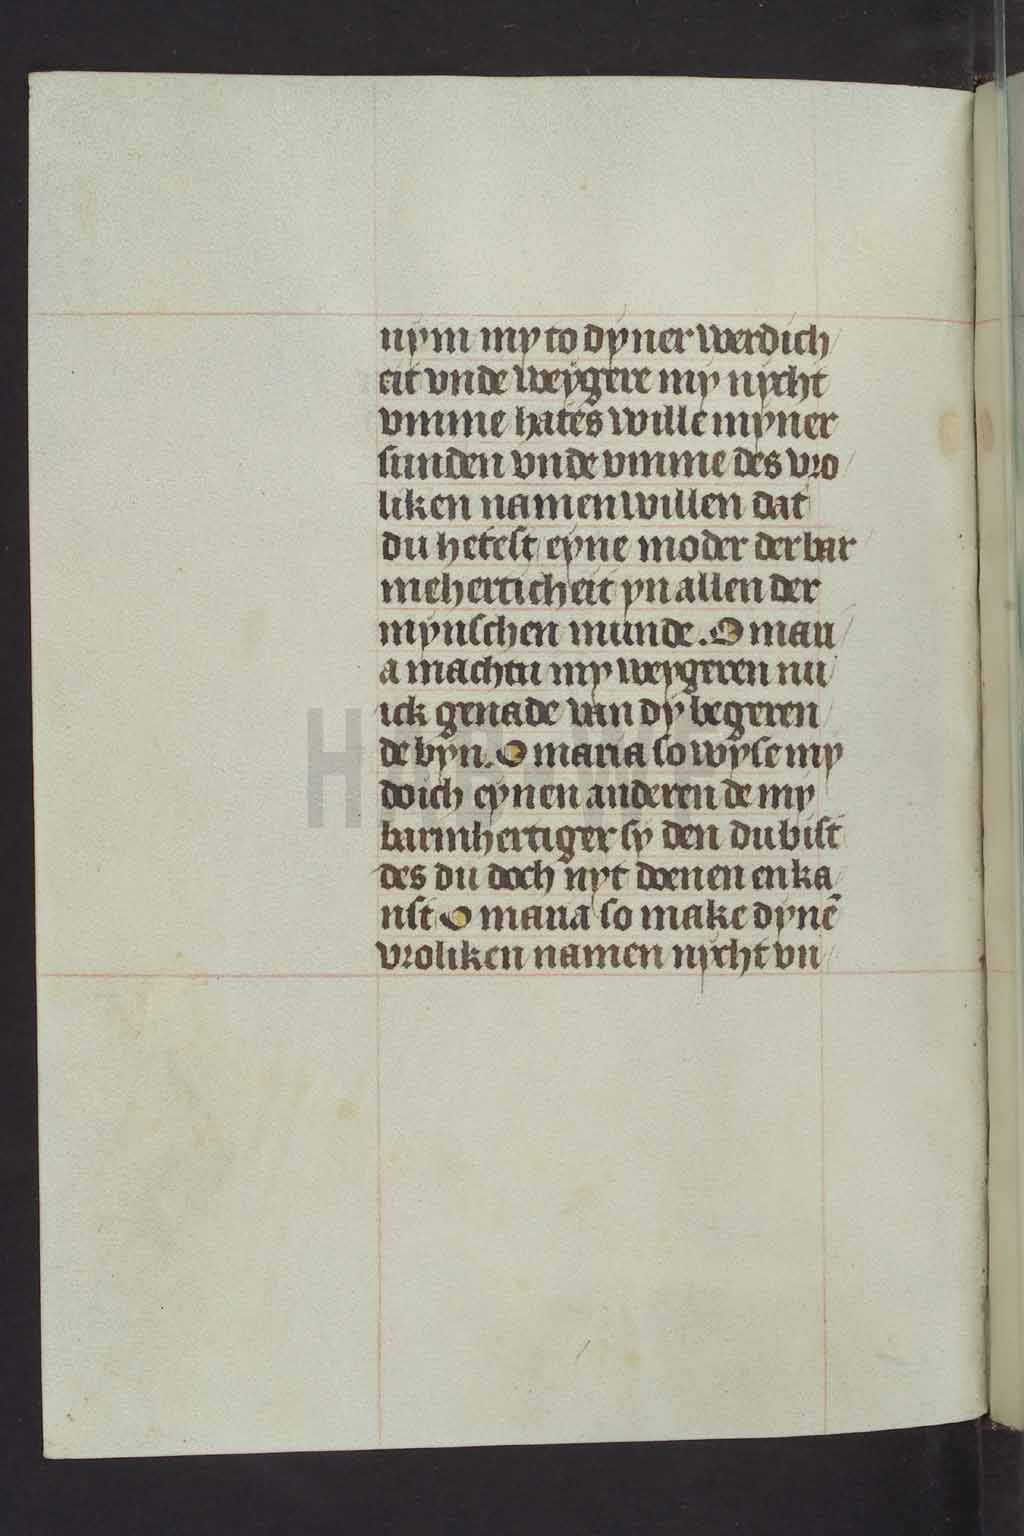 nym my to dyner werdich
eit vnde weygere my nycht
vmme hates wille myner
sunden vnde vmme des vro
liken namen willen dat
du hetest eyne moder der bar
meherticheit yn allen der
mynschen munde. O mari
a machtu my weygeren nu
ick genade van dy begeren
de byn. O maria so wyse my
doich eynen anderen de my
barmhertiger sy den du bist
des du doch nyt doenen enka
nst O maria so make dynē
vroliken namen nycht vn